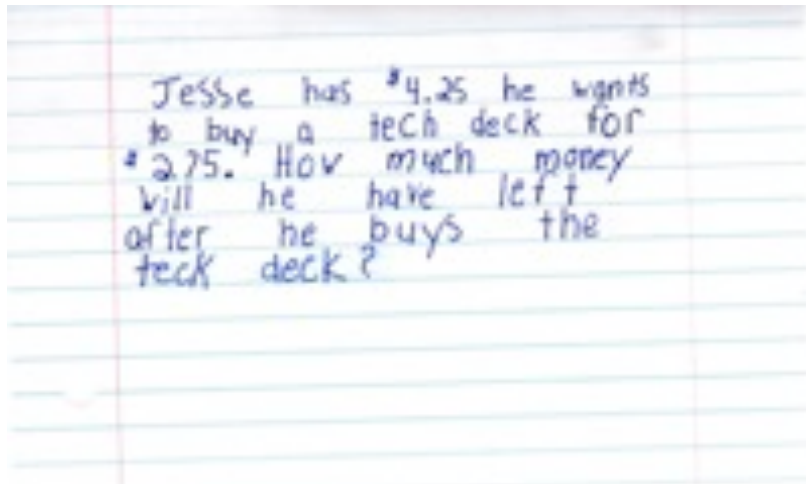 Jesse has $4.25 he wants
to buy a tech deck for
$2.75. How much money
will he have left
after he buys the
teck deck?